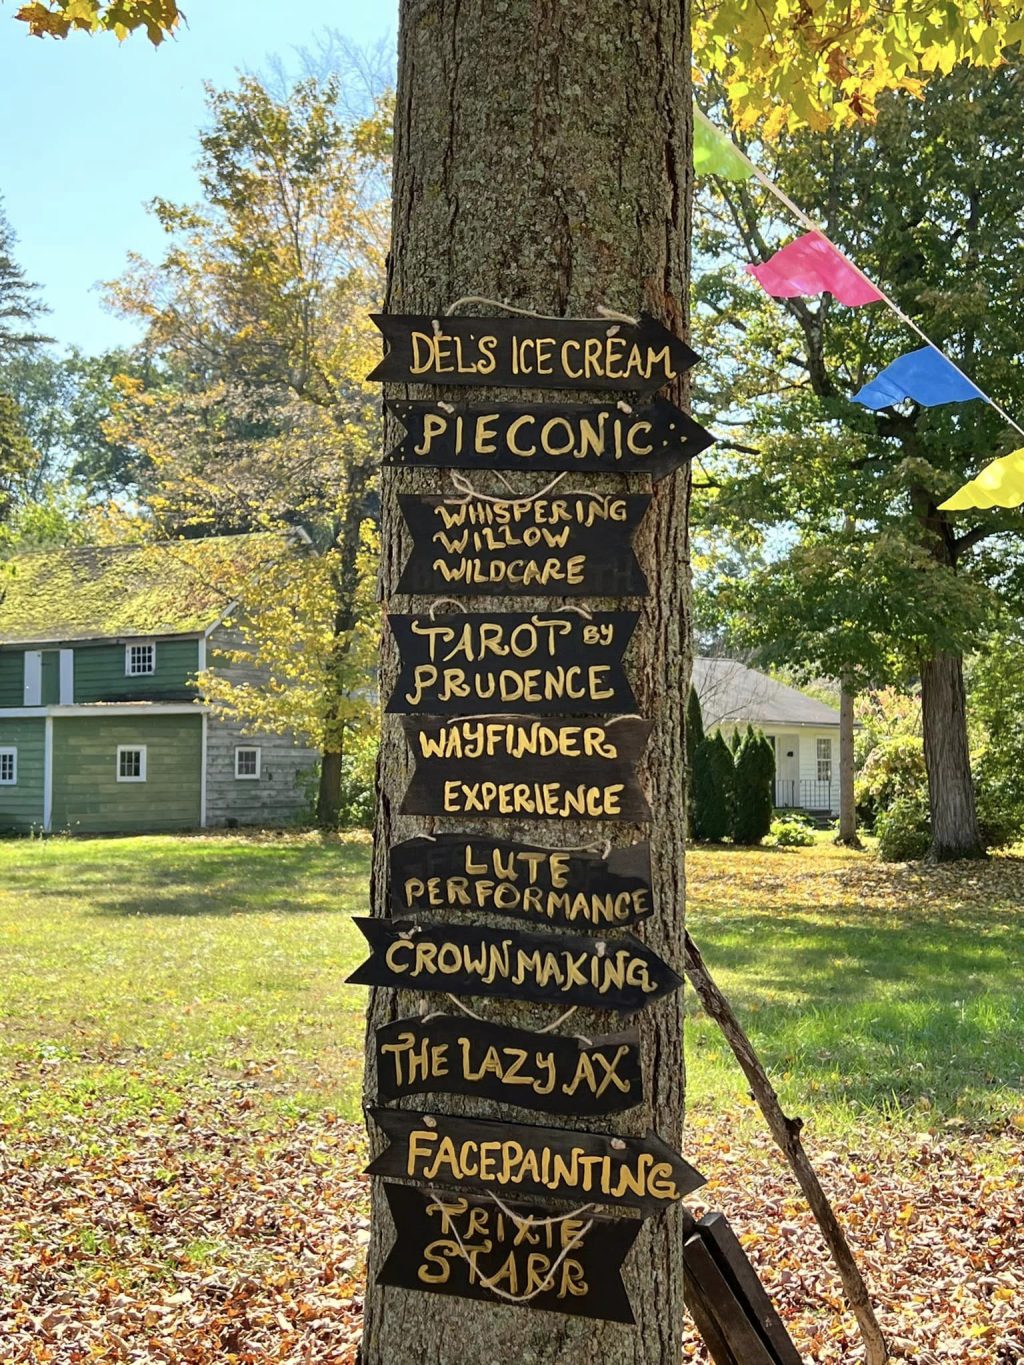 DEL'S ICE CREAM
PIECONIC
WHISPERING
WILLOW
WILDCARE
TAROT BY
PRUDENCE
WAYFINDER
EXPERIENCE
LUTE
PERFORMANCE
CROWN MAKING
THE LAZY AX
FACEPAINTING
TRIXIE
STARR